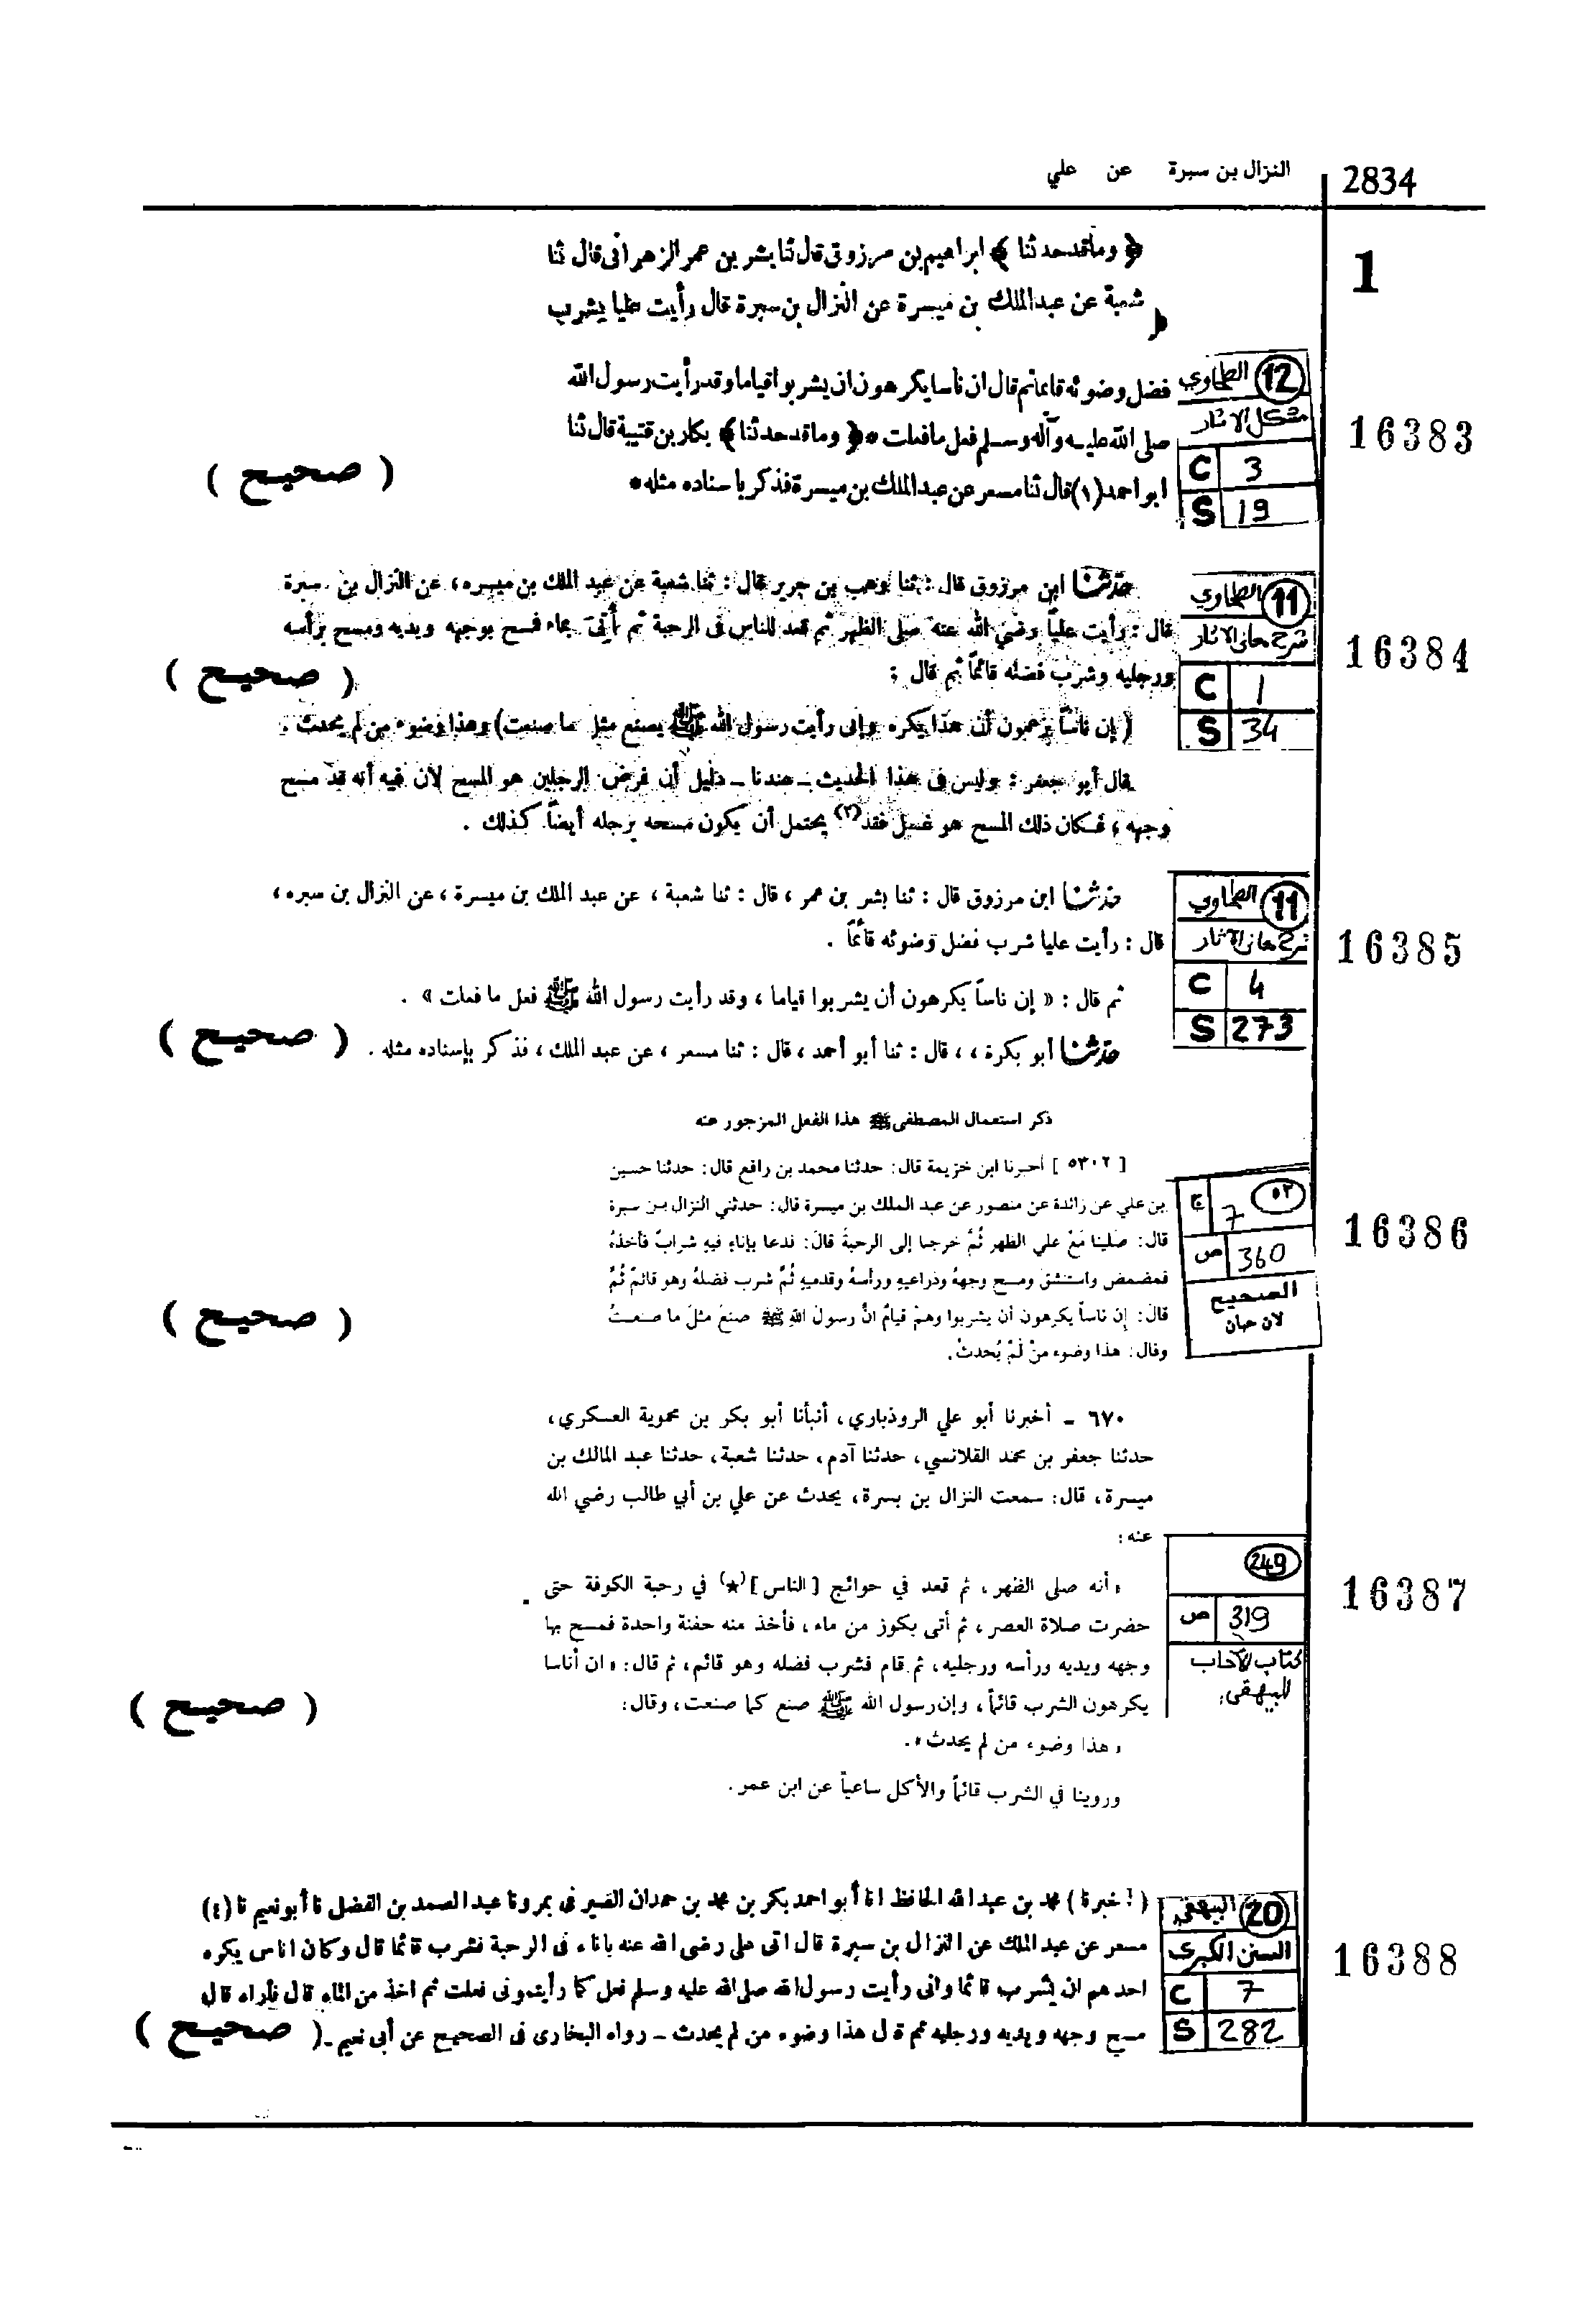 2834
النزال بن سبرة عن علي
1
﴿ وماقدحدثنا ﴾ ابراهيم بن مرزوق قال ثنا بشر بن عمر الزهرانى قال ثنا
شعبة عن عبدالملك بن ميسرة عن النزال بن سبرة قال رأيت عليا يشرب
فضل وضوئه قائما ثم قال ان ناسا يكرهون ان يشربوا قياما وقد رأيت رسول الله
صلى الله عليه وآله وسلم فعل ما فعلت * ﴿ وماقدحدثنا ﴾ بكار بن قتيبة قال ثنا
ابو احمد (١) قال ثنا مسعر عن عبد الملك بن ميسرة فذكر باسناده مثله *
( صحيح )
12 الطحاوي
مشكل الاثار
C 3
S 19
16383
حدثنا ابن مرزوق قال : ثنا وهب بن جرير قال : ثنا شعبة عن عبد الملك بن ميسره ، عن النزال بن سبرة
قال : رأيت علياً رضي الله عنه صلى الظهر ثم قعد للناس فى الرحبة ثم أتى بماء فمسح بوجهه ويديه ومسح برأسه
ورجليه وشرب فضله قائماً ثم قال :
( إن ناساً يزعمون أن هذا يكره وإنى رأيت رسول الله ﷺ يصنع مثل ما صنعت ) وهذا وضوء من لم يحدث .
قال أبو جعفر : وليس فى هذا الحديث ـ عندنا ـ دليل أن فرض الرجلين هو المسح لأن فيه أنه قد مسح
وجهه ، فكان ذلك المسح هو غسل فقد (٢) يحتمل أن يكون مسحه برجله أيضاً كذلك .
( صحيح )
11 الطحاوي
شرح معاني الاثار
C 1
S 34
16384
حدثنا ابن مرزوق قال : ثنا بشر بن عمر ، قال : ثنا شعبة ، عن عبد الملك بن ميسرة ، عن النزال بن سبره ،
قال : رأيت عليا شرب فضل وضوئه قائماً .
ثم قال : « إن ناساً يكرهون أن يشربوا قياما ، وقد رأيت رسول الله ﷺ فعل ما فعلت » .
حدثنا أبو بكرة ، ، قال : ثنا أبو أحمد ، قال : ثنا مسعر ، عن عبد الملك ، فذكر بإسناده مثله .
( صحيح )
11 الطحاوي
شرح معاني الاثار
C 4
S 273
16385
ذكر استعمال المصطفى ﷺ هذا الفعل المزجور عنه
[ ٥٣٠٢ ] أخبرنا ابن خزيمة قال: حدثنا محمد بن رافع قال: حدثنا حسين
بن علي عن زائدة عن منصور عن عبد الملك بن ميسرة قال: حدثني النزال بن سبرة
قال: صلينا مَعْ علي الظهر ثُمَّ خرجنا إلى الرحبةَ قالَ: فدعا بإناءٍ فيهِ شرابٌ فأخذهُ
فمضمض واستنشق ومسح وجههُ وذراعيهِ ورأسهُ وقدميهِ ثُمَّ شرب فضلهُ وهو قائمٌ ثُمَّ
قالَ: إن ناساً يكرهون أن يشربوا وهمْ قيامٌ انَّ رسولَ اللهِ ﷺ صنعَ مثلَ ما صنعتُ
وقال: هذا وضوء منْ لَمْ يُحدثْ.
( صحيح )
٥٢
ج 7
ص 360
الصحيح
لابن حبان
16386
٦٧٠ ـ أخبرنا أبو علي الروذباري، أنبأنا أبو بكر بن محموية العسكري،
حدثنا جعفر بن محمد القلانسي، حدثنا آدم، حدثنا شعبة، حدثنا عبد المالك بن
ميسرة، قال: سمعت النزال بن بسرة، يحدث عن علي بن أبي طالب رضي الله
عنه:
« أنه صلى الظهر، ثم قعد في حوائج [ الناس ] (★) في رحبة الكوفة حتى
حضرت صلاة العصر، ثم أتى بكوز من ماء، فأخذ منه حفنة واحدة فمسح بها
وجهه ويديه ورأسه ورجليه، ثم قام فشرب فضله وهو قائم، ثم قال: « ان أناسا
يكرهون الشرب قائماً، وإن رسول الله ﷺ صنع كما صنعت، وقال:
« هذا وضوء من لم يحدث ».
وروينا في الشرب قائماً والأكل ساعياً عن ابن عمر.
( صحيح )
249
ص 319
كتاب الآداب
للبيهقي
16387
( أخبرنا ) محمد بن عبدالله الحافظ انا أبو احمد بكر بن محمد بن حمدان الصيرفى بمرو نا عبدالصمد بن الفضل نا أبو نعيم نا (٤)
مسعر عن عبد الملك عن النزال بن سبرة قال اتى على رضى الله عنه باناء فى الرحبة فشرب قائما قال وكان اناس يكره
احدهم ان يشرب قائما وانى رأيت رسول الله صلى الله عليه وسلم فعل كما رأيتمونى فعلت ثم اخذ من الماء قال فأراه قال
مسح وجهه ويديه ورجليه ثم قال هذا وضوء من لم يحدث ـ رواه البخارى فى الصحيح عن أبى نعيم ـ
( صحيح )
20 البيهقي
السنن الكبرى
C 7
S 282
16388